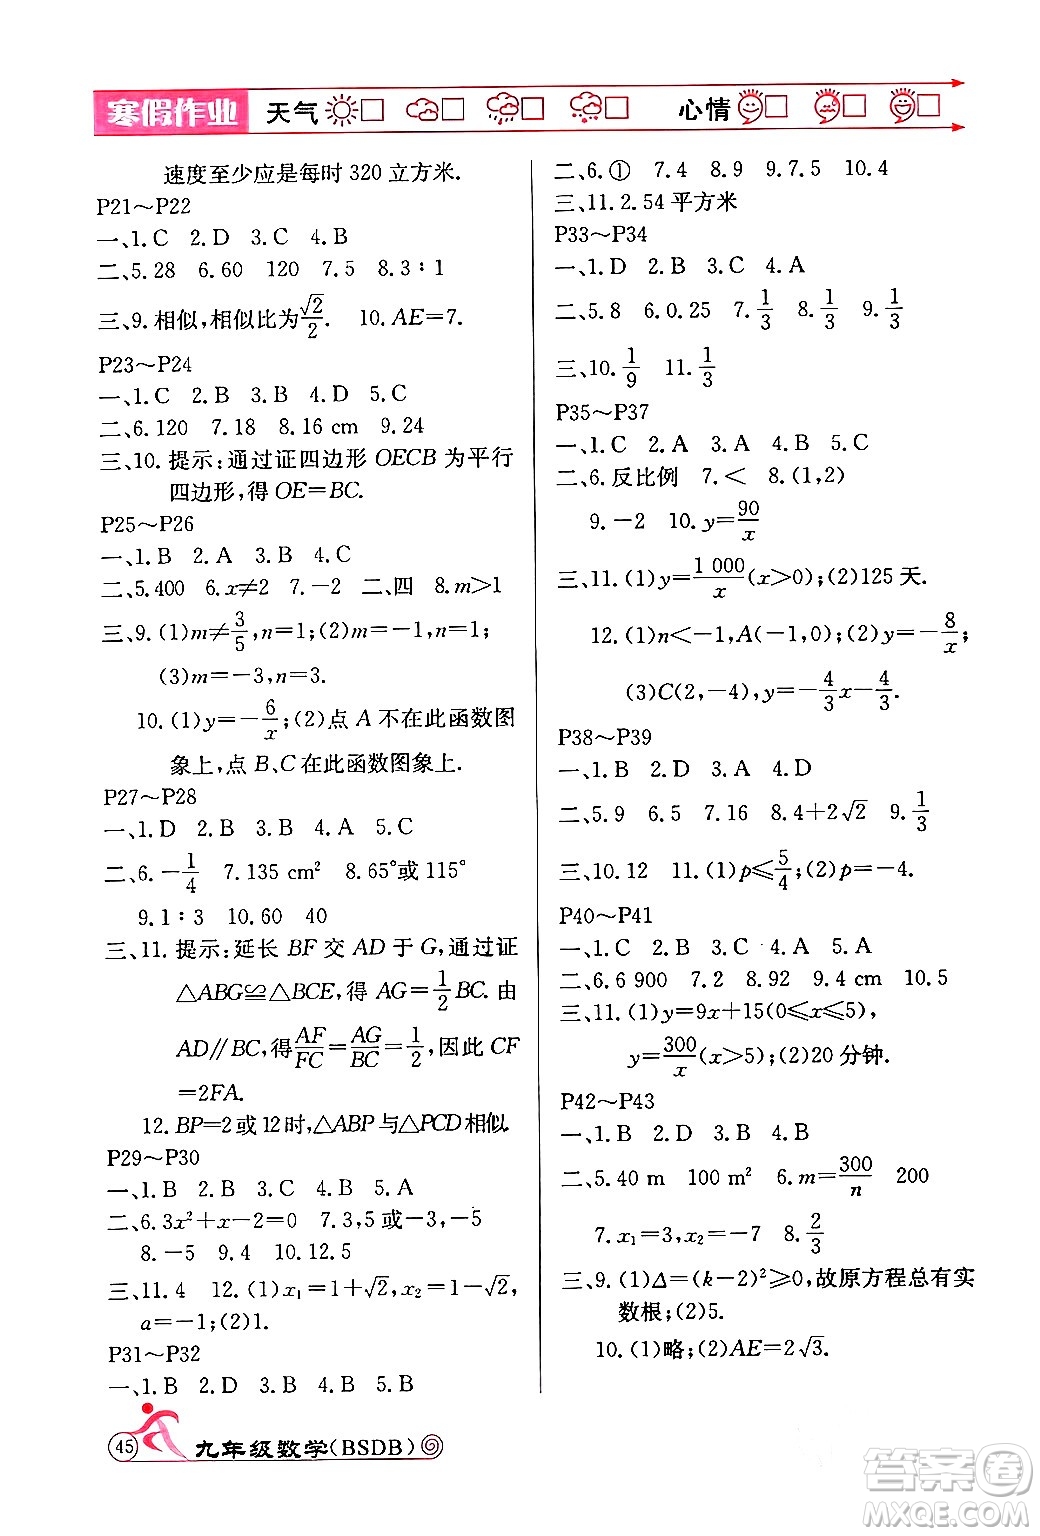 寒假作业 天气 心情
速度至少应是每时 320 立方米.
P21～P22
一、1. C 2. D 3. C 4. B
二、5. 28 6. 60 120 7. 5 8. 3∶1
三、9. 相似,相似比为√2/2. 10. AE=7.
P23～P24
一、1. C 2. B 3. B 4. A 5. C
二、6. 120 7. 18 8. 16 cm 9. 24
三、10. 提示:通过证四边形 OECB 为平行
四边形,得 OE=BC.
P25～P26
一、1. B 2. A 3. B 4. C
二、5. 400 6. x≠2 7. −2 二、四 8. m>1
三、9. (1)m≠3/5,n=1;(2)m=−1,n=1;
(3)m=−3,n=3.
10. (1)y=−6/x;(2)点 A 不在此函数图
象上,点 B、C 在此函数图象上.
P27～P28
一、1. D 2. B 3. D 4. A 5. C
二、6. −1/4 7. 135 cm² 8. 65°或 115°
9. 1∶3 10. 60 40
三、11. 提示:延长 BF 交 AD 于 G,通过证
△ABG≌△BCE,得 AG=1/2BC. 由
AD∥BC,得AF/FC=AG/BC=1/2,因此 CF
=2FA.
12. BP=2 或 12 时,△ABP 与△PCD 相似.
P29～P30
一、1. B 2. B 3. C 4. B 5. A
二、6. 3x²+x−2=0 7. 3,5 或−3,−5
8. −5 9. 4 10. 12.5
三、11. 4 12. (1)x₁=1+√2,x₂=1−√2,
a=−1;(2)1.
P31～P32
一、1. B 2. D 3. C 4. B 5. B
二、6. ① 7. 4 8. 9 9. 7.5 10. 4
三、11. 2.54 平方米
P33～P34
一、1. D 2. B 3. C 4. A
二、5. 8 6. 0.25 7. 1/3 8. 1/3 9. 1/3
三、10. 1/9 11. 1/3
P35～P37
一、1. C 2. A 3. D 4. B 5. C
二、6. 反比例 7. < 8. (1,2)
9. −2 10. y=90/x
三、11. (1)y=1 000/x(x>0);(2)125 天.
12. (1)n<−1,A(−1,0);(2)y=−8/x;
(3)C(2,−4),y=−4/3x−4/3.
P38～P39
一、1. B 2. D 3. A 4. D
二、5. 9 6. 5 7. 16 8. 4+2√2 9. 1/3
三、10. 12 11. (1)p≤5/4;(2)p=−4.
P40～P41
一、1. C 2. D 3. C 4. A 5. A
二、6. 6 900 7. 2 8. 92 9. 4 cm 10. 5
三、11. (1)y=9x+15(0≤x≤5),
y=300/x(x>5);(2)20 分钟.
P42～P43
一、1. B 2. D 3. D 4. B
二、5. 40 m 100 m² 6. m=300/n 200
7. x₁=3,x₂=−2 8. 2/3
三、9. (1)Δ=(k−2)²≥0,故原方程总有实
数根;(2)5.
10. (1)略;(2)AE=2√3.
45 九年级数学(BSDB)
答案卷
MXQE.COM